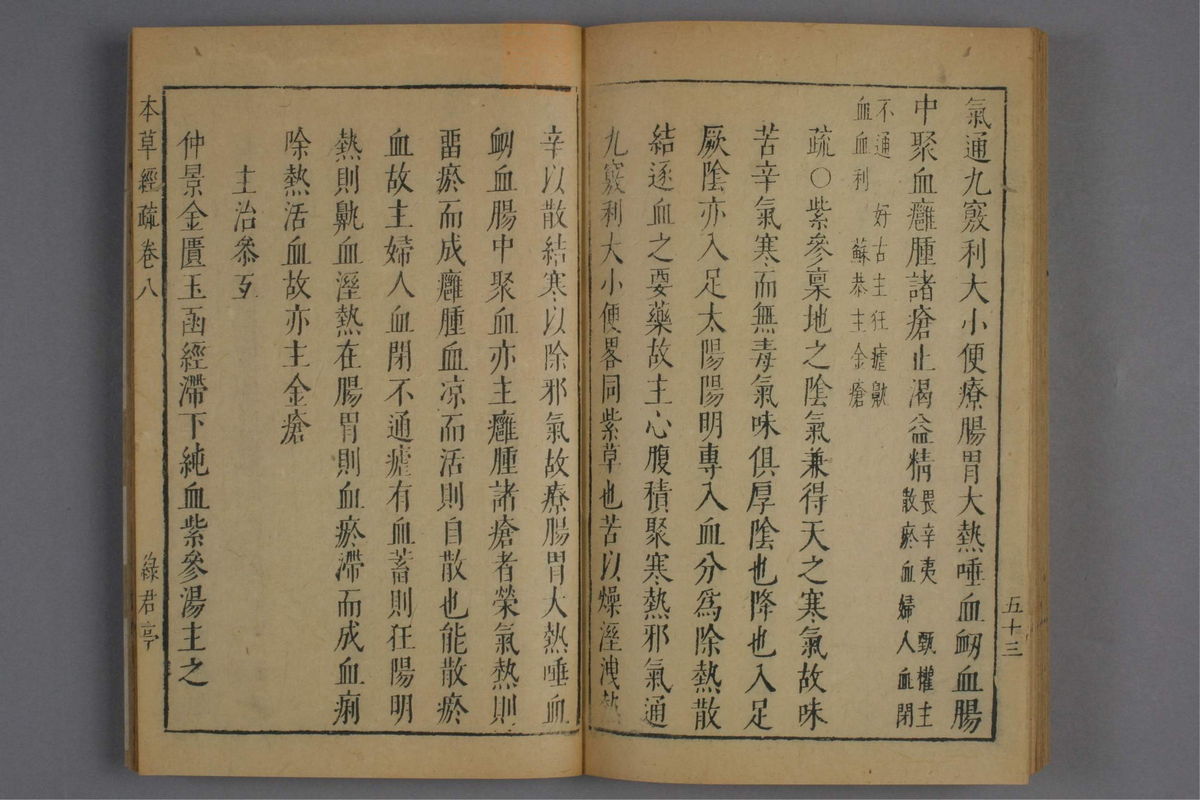 氣通九竅利大小便療腸胃大熱唾血衂血腸
中聚血癰腫諸瘡止渴益精畏辛夷 甄權主散瘀血婦人血閉
不通 好古主狂瘧鼽血血利 蘇恭主金瘡
疏○紫參稟地之陰氣兼得天之寒氣故味
苦辛氣寒而無毒氣味俱厚陰也降也入足
厥陰亦入足太陽陽明專入血分爲除熱散
結逐血之要藥故主心腹積聚寒熱邪氣通
九竅利大小便畧同紫草也苦以燥溼洩熱
辛以散結寒以除邪氣故療腸胃大熱唾血
衂血腸中聚血亦主癰腫諸瘡者榮氣熱則
畱瘀而成癰腫血凉而活則自散也能散瘀
血故主婦人血閉不通瘧有血蓄則狂陽明
熱則鼽血溼熱在腸胃則血瘀滯而成血痢
除熱活血故亦主金瘡
主治參互
仲景金匱玉函經滯下純血紫參湯主之
五十三
本草經疏卷八
綠君亭